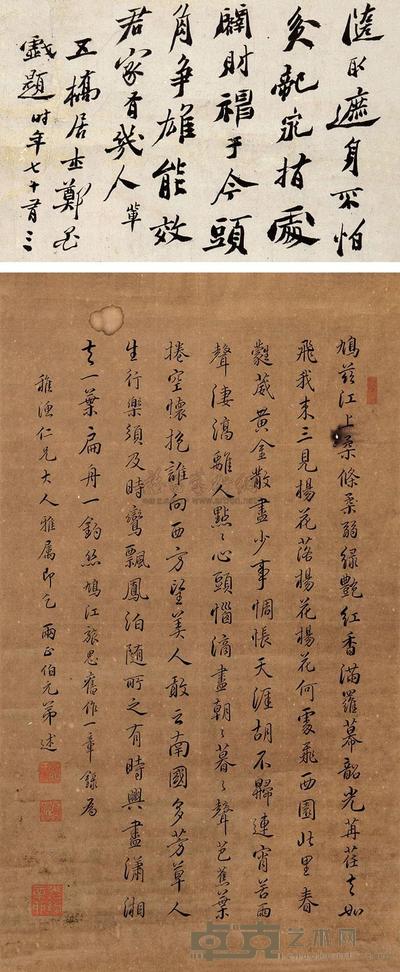 隨取遮身不怕
貧亂飛指處
關財禍于今頭
角爭雄能效
君家有幾人輩
五橋居士鄭
戲題時年七十有三
鳩茲江上桑條柔弱綠艷紅香滿羅幕韶光苒荏去如
飛我來三見楊花落楊花楊花何處飛西園北里春
葳黃金散盡少事惆悵天涯胡不歸連宵苦雨
聲淒滴離人點點心頭惱滴盡朝朝暮暮聲芭蕉葉
捲空懷抱誰向西方望美人敢云南國多芳草人
生行樂須及時鸞飄鳳泊隨所之有時興盡瀟湘
去一葉扁舟一釣絲鳩江旅思舊作一章錄為
雅漁仁兄大人雅屬即乞兩正伯元弟述
卓克艺术网